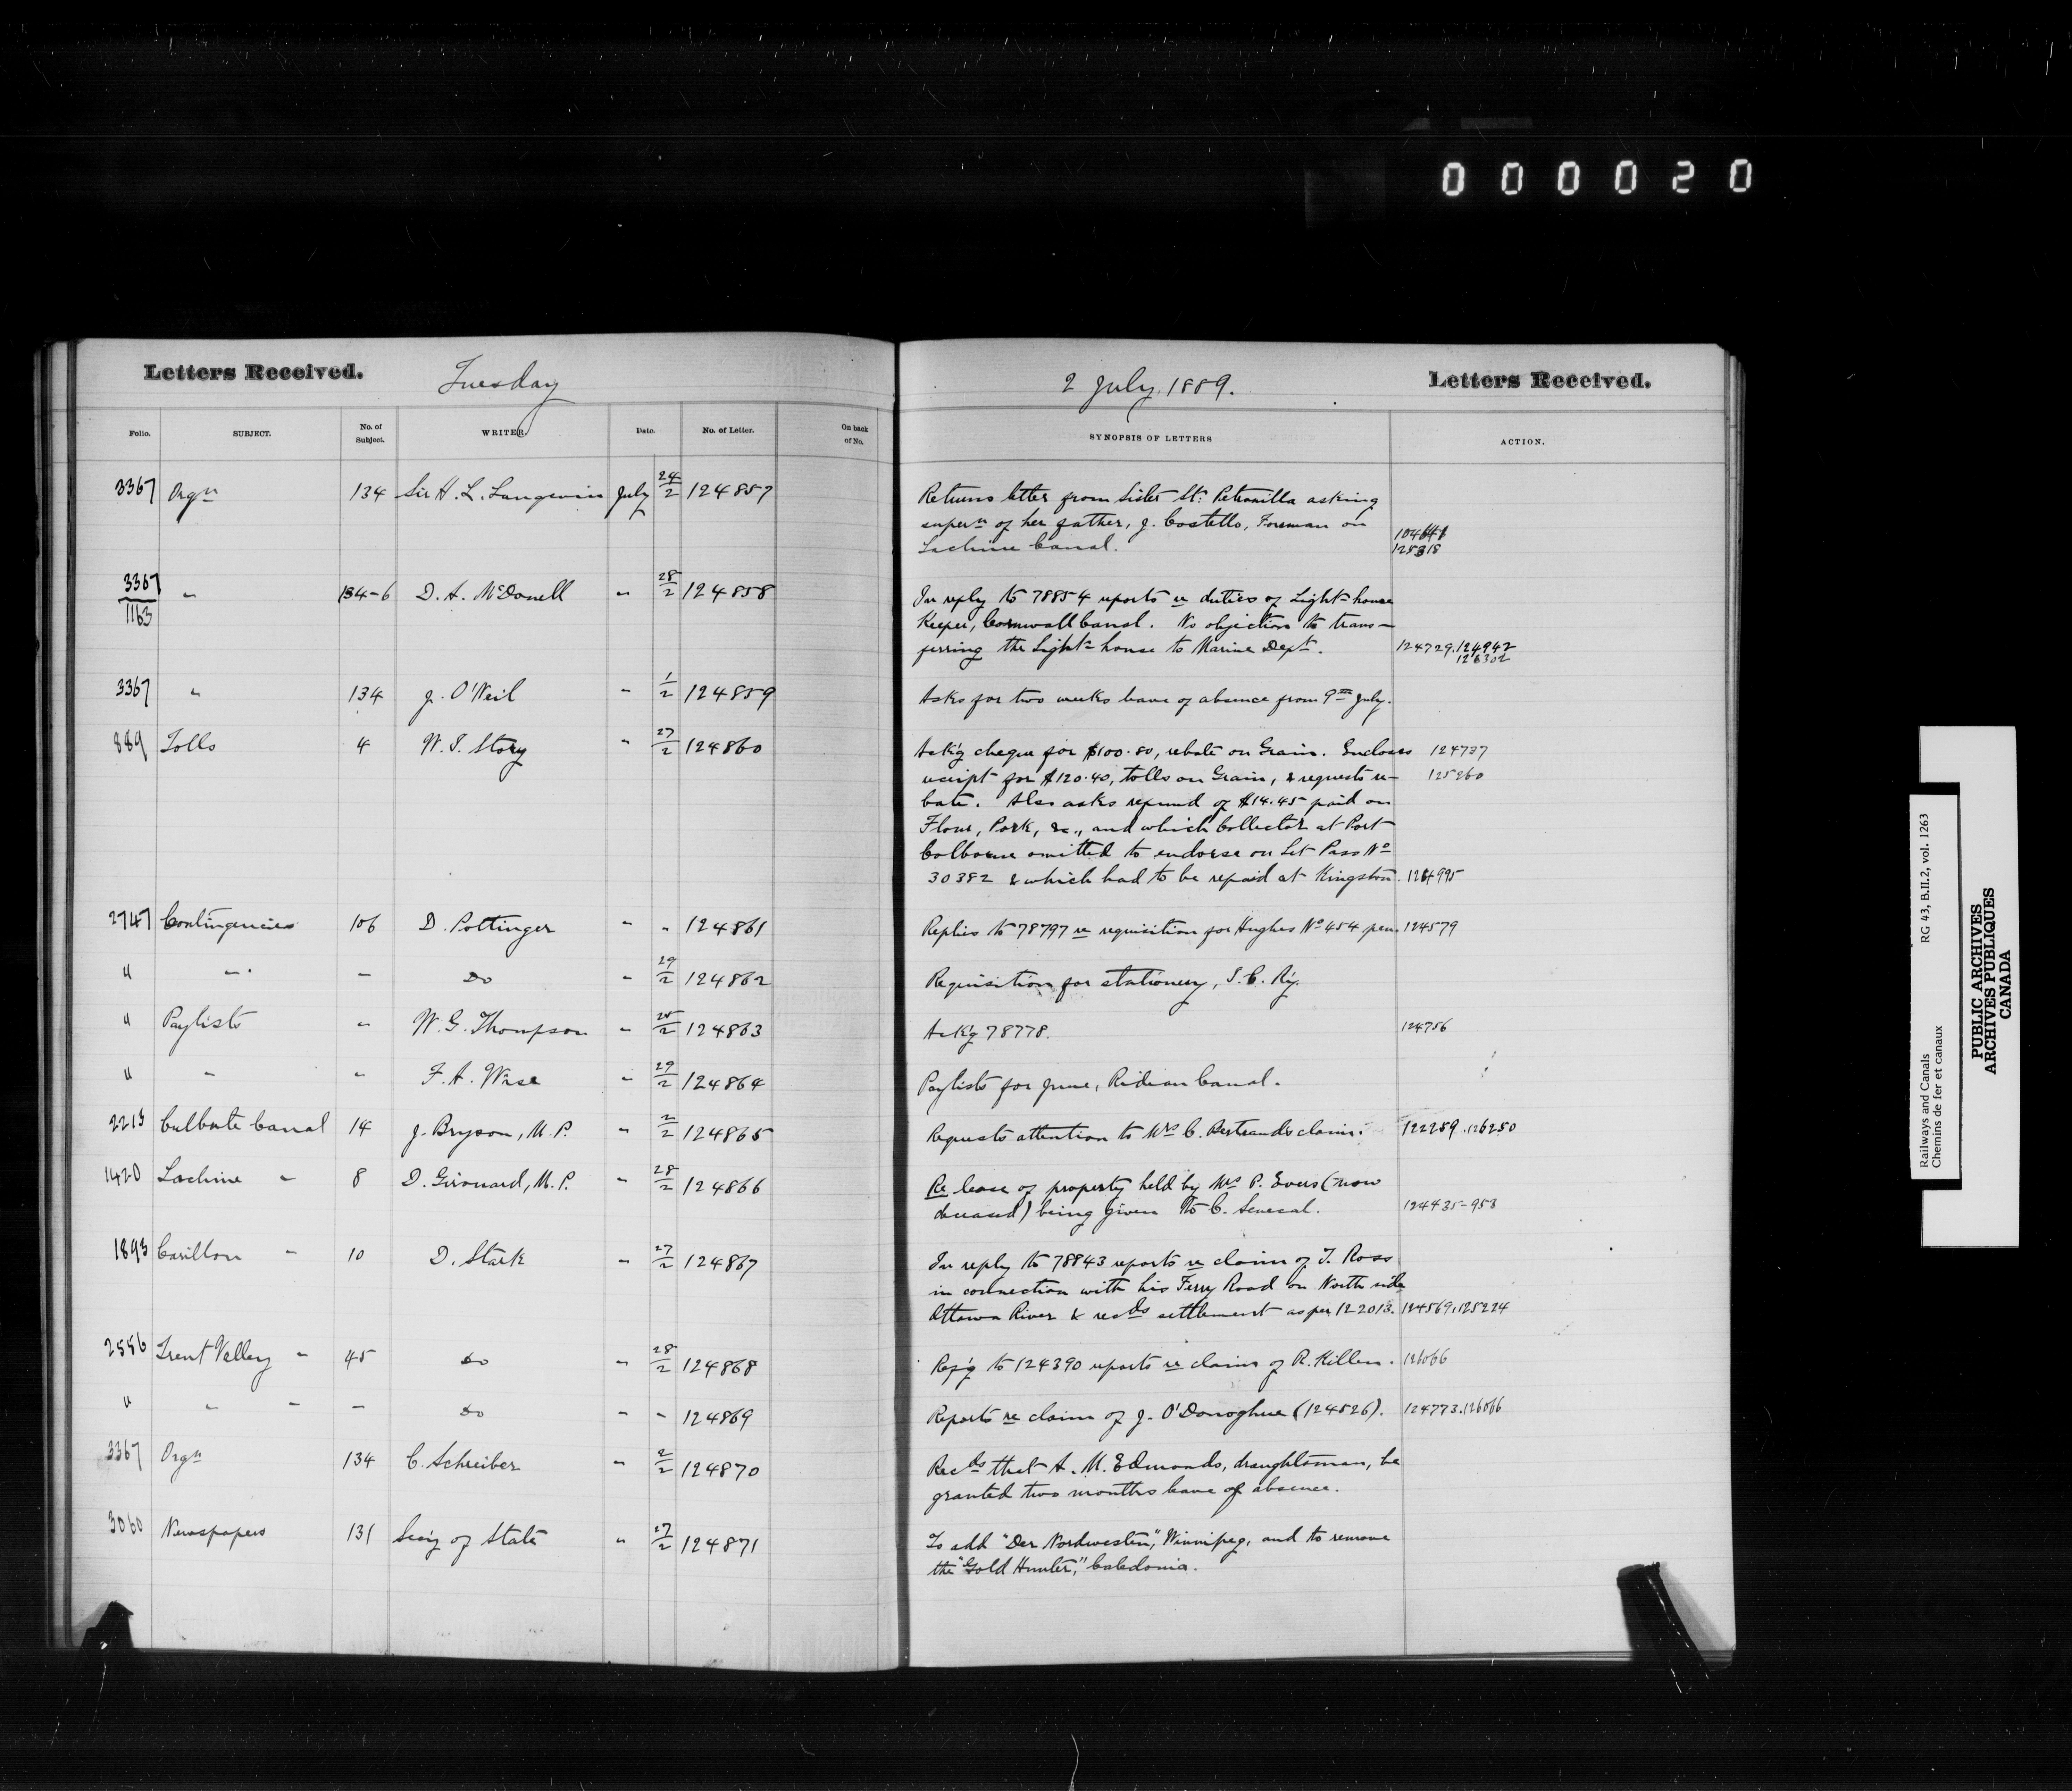 000020
Letters Received. Tuesday
2 July, 1889. Letters Received.
Folio. SUBJECT. No. of Subject. WRITER. Date. No. of Letter. On back of No.
SYNOPSIS OF LETTERS ACTION.
3367 Orgn 134 Sir H. L. Langevin July 24/2 124857
Returns letter from Sister St. Petronilla asking
supern of her father, J. Costello, Foreman on
Lachine Canal. 125318
3367/1163 " 134-6 D. A. McDonell " 28/2 124858
In reply to 78854 reports re duties of Light-house
Keeper, Cornwall Canal. No objection to trans-
ferring the Light-house to Marine Dept. 124729. 124942
126302
3367 " 134 J. O'Neil " 1/2 124859
Asks for two weeks leave of absence from 9th July.
889 Tolls 4 W. J. Story " 27/2 124860
Ack'g cheque for $100.80, rebate on Grain. Encloses 124737
receipt for $120.40, tolls on Grain, & requests re- 125260
bate. Also asks refund of $14.45 paid on
Flour, Pork, &c., and which Collector at Port
Colborne omitted to endorse on Let Pass No
30382 & which had to be repaid at Kingston. 124995
2747 Contingencies 106 D. Pottinger " " 124861
Replies to 78797 re requisition for Hughes No 454 pen. 124579
" " - Do " 29/2 124862
Requisition for stationery, I. C. Ry.
" Paylists " W. G. Thompson " 25/2 124863
Ack'g 78778. 124756
" " " F. A. Wise " 29/2 124864
Paylists for June, Rideau Canal.
2213 Culbute Canal 14 J. Bryson, M.P. " 2/2 124865
Requests attention to Mrs C. Bertrand's claim. 122289. 126250
1420 Lachine " 8 D. Girouard, M.P. " 28/2 124866
Re lease of property held by Mrs P. Evers (now
deceased) being given to C. Senecal. 124435-953
1893 Carillon " 10 D. Stark " 27/2 124867
In reply to 78843 reports re claim of T. Ross
in connection with his Ferry Road on North side
Ottawa River & recds settlement as per 122013. 124569. 125224
2556 Trent Valley " 45 Do " 28/2 124868
Ref'g to 124390 reports re claim of R. Killen. 126066
" " " - Do " " 124869
Reports re claim of J. O'Donoghue (124826). 124773. 126066
3367 Orgn 134 C. Schreiber " 2/2 124870
Recds that A. M. Edmonds, draughtsman, be
granted two months leave of absence.
3060 Newspapers 131 Sec'y of State " 27/2 124871
To add "Der Nordwesten," Winnipeg, and to remove
the "Gold Hunter," Caledonia.
Railways and Canals RG 43, B.II.2, vol. 1263
Chemins de fer et canaux
PUBLIC ARCHIVES
ARCHIVES PUBLIQUES
CANADA